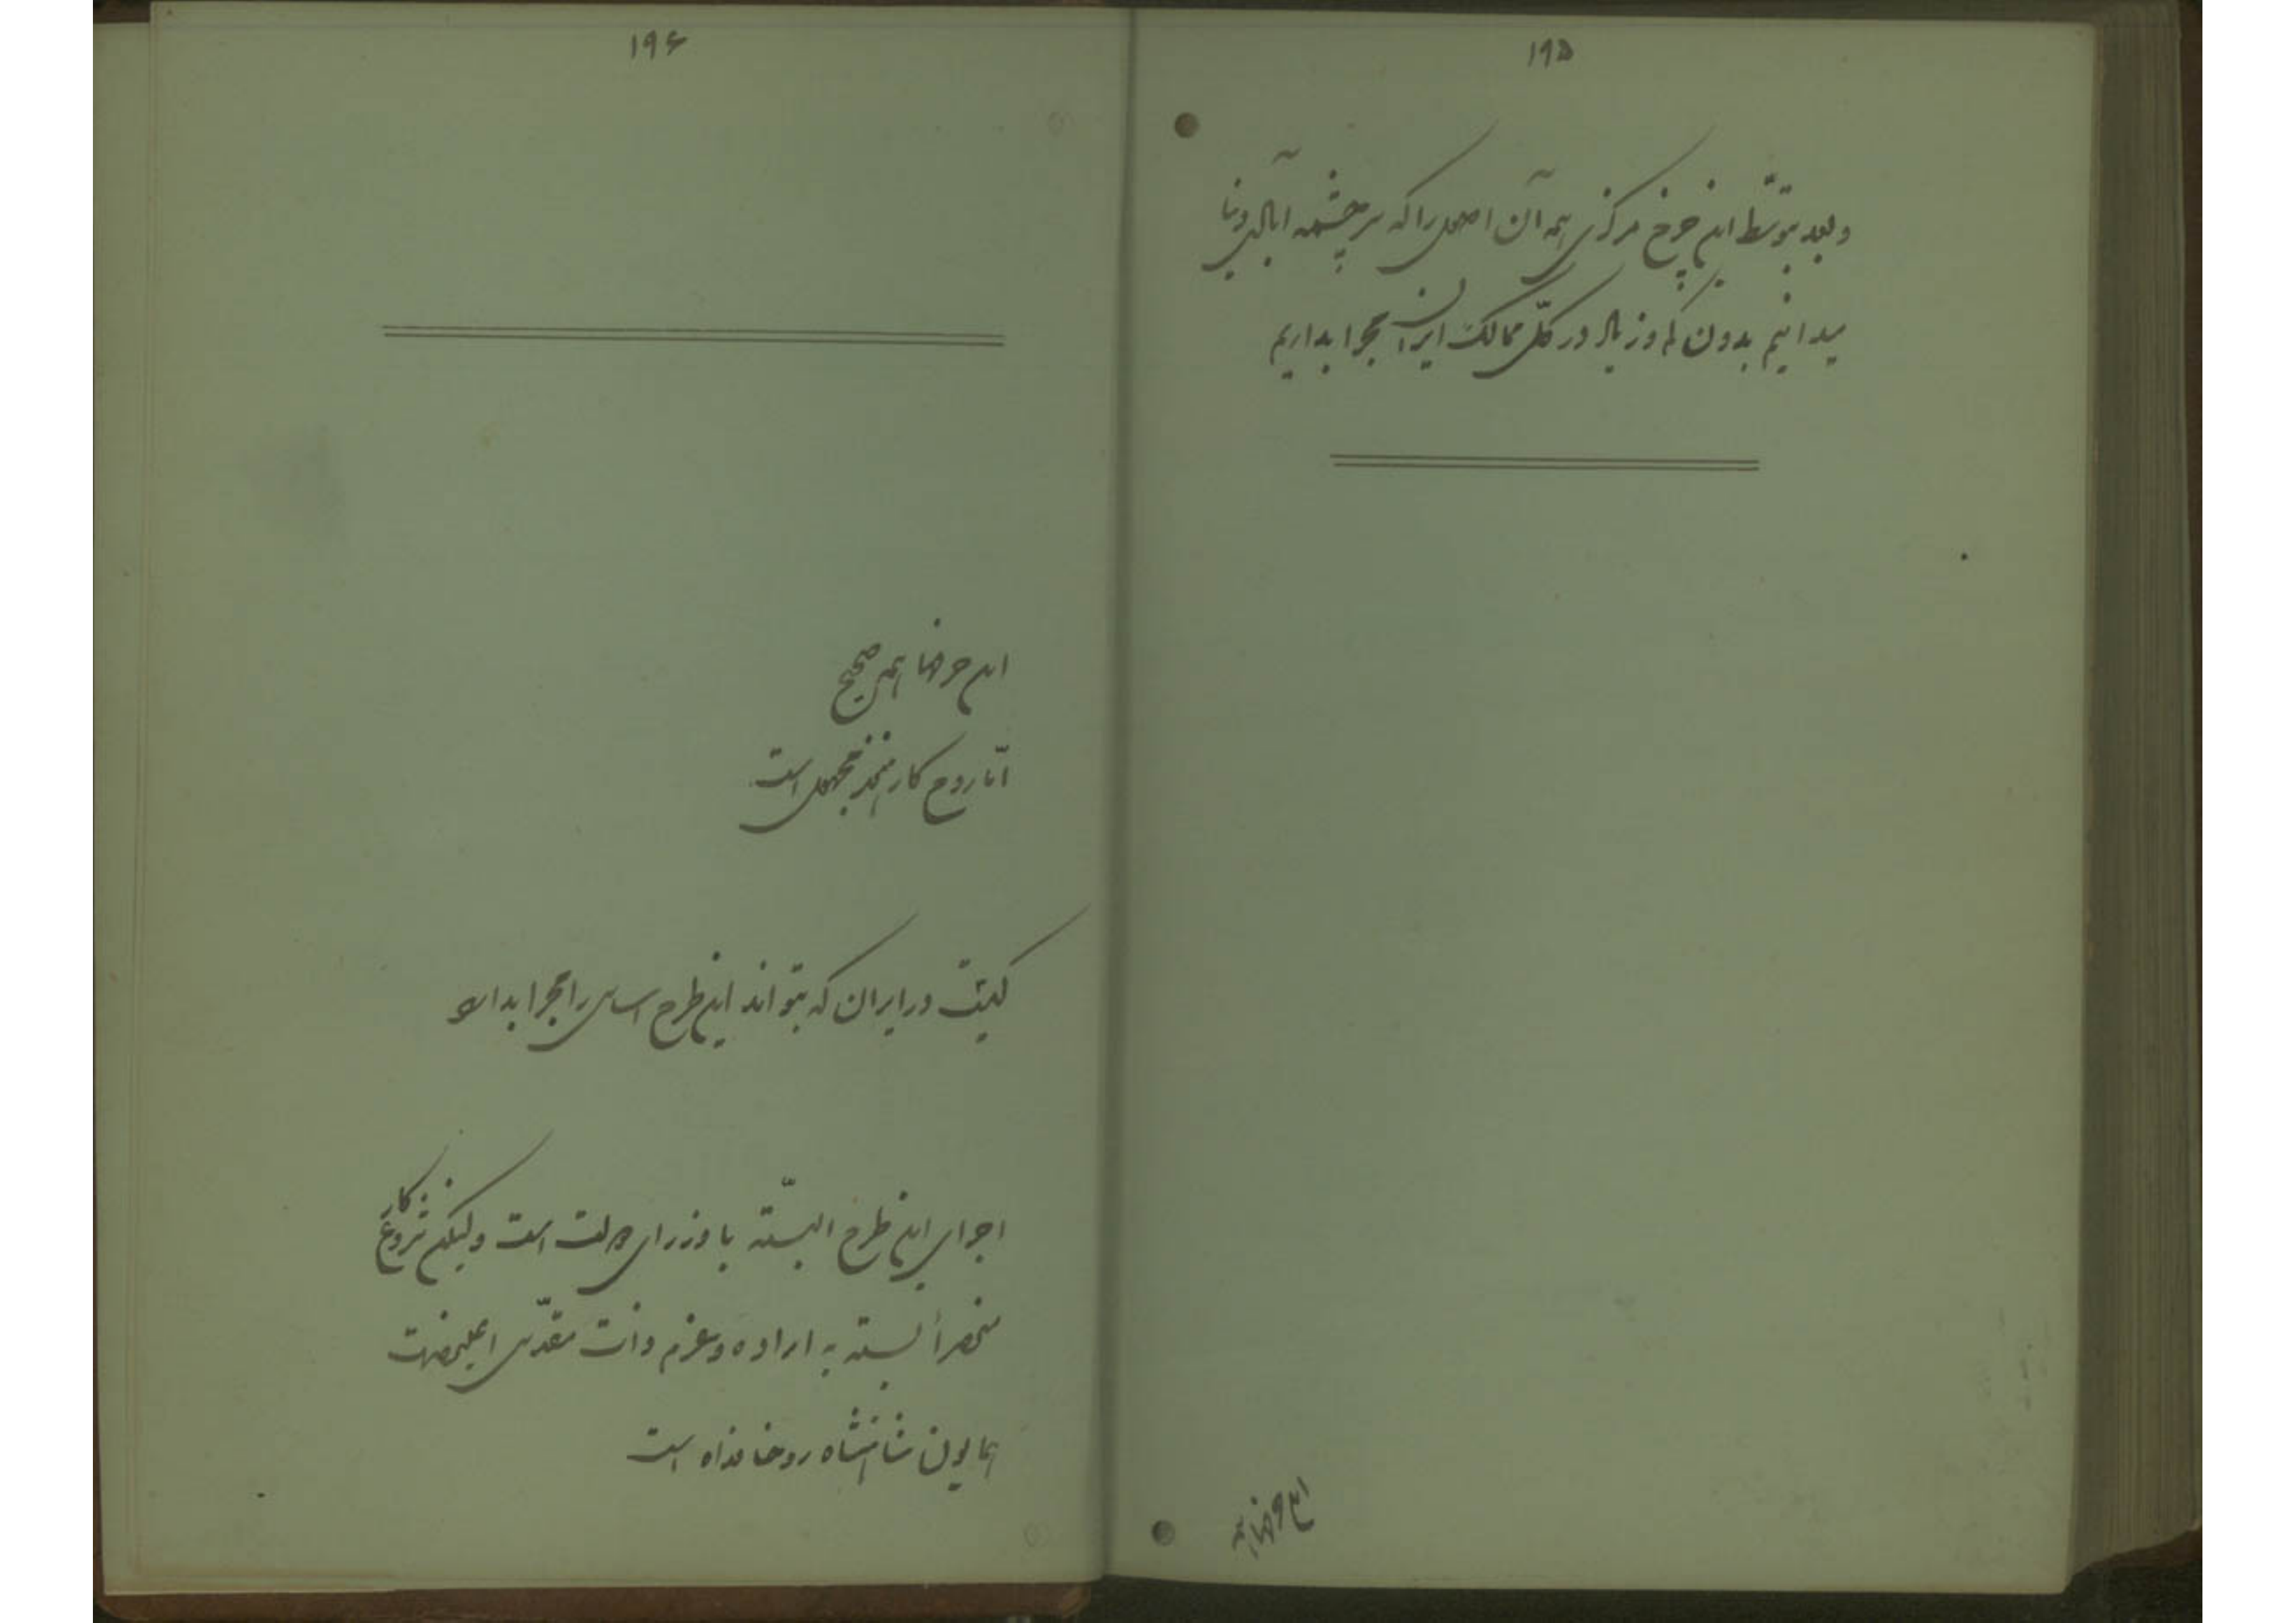 ۱۹۵
و بعد بتوسّط این چرخ مرکزی همه آن اصول را که سرچشمه آبادی دنیا
میدانیم بدون کم و زیاد در کلّ ممالک ایران مجرا بداریم
این حرفها همه
۱۹۶
این حرفها همه صحیح
امّا روح کار هنوز مجهول است
کیست در ایران که بتواند این طرح اساسی را مجرا بدارد
اجرای این طرح البتّه با وزرای دولت است ولیکن شروع کار
منحصراً بسته به اراده و عزم ذات مقدّس اعلیحضرت
همایون شاهنشاه روحنا فداه است